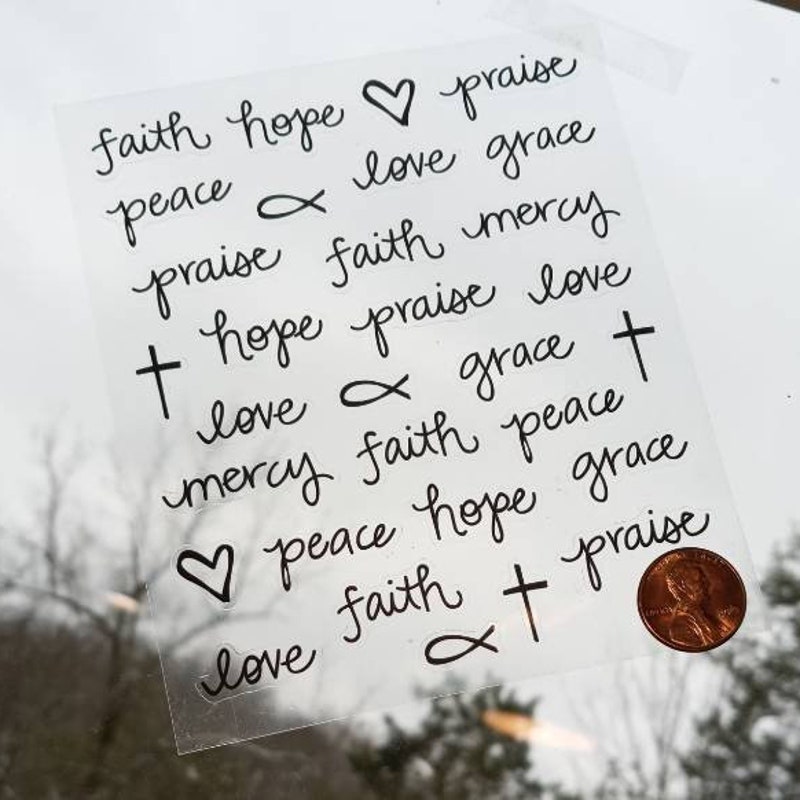 faith hope praise
peace love grace
praise faith mercy
hope praise love
love grace
mercy faith peace
peace hope grace
love faith praise